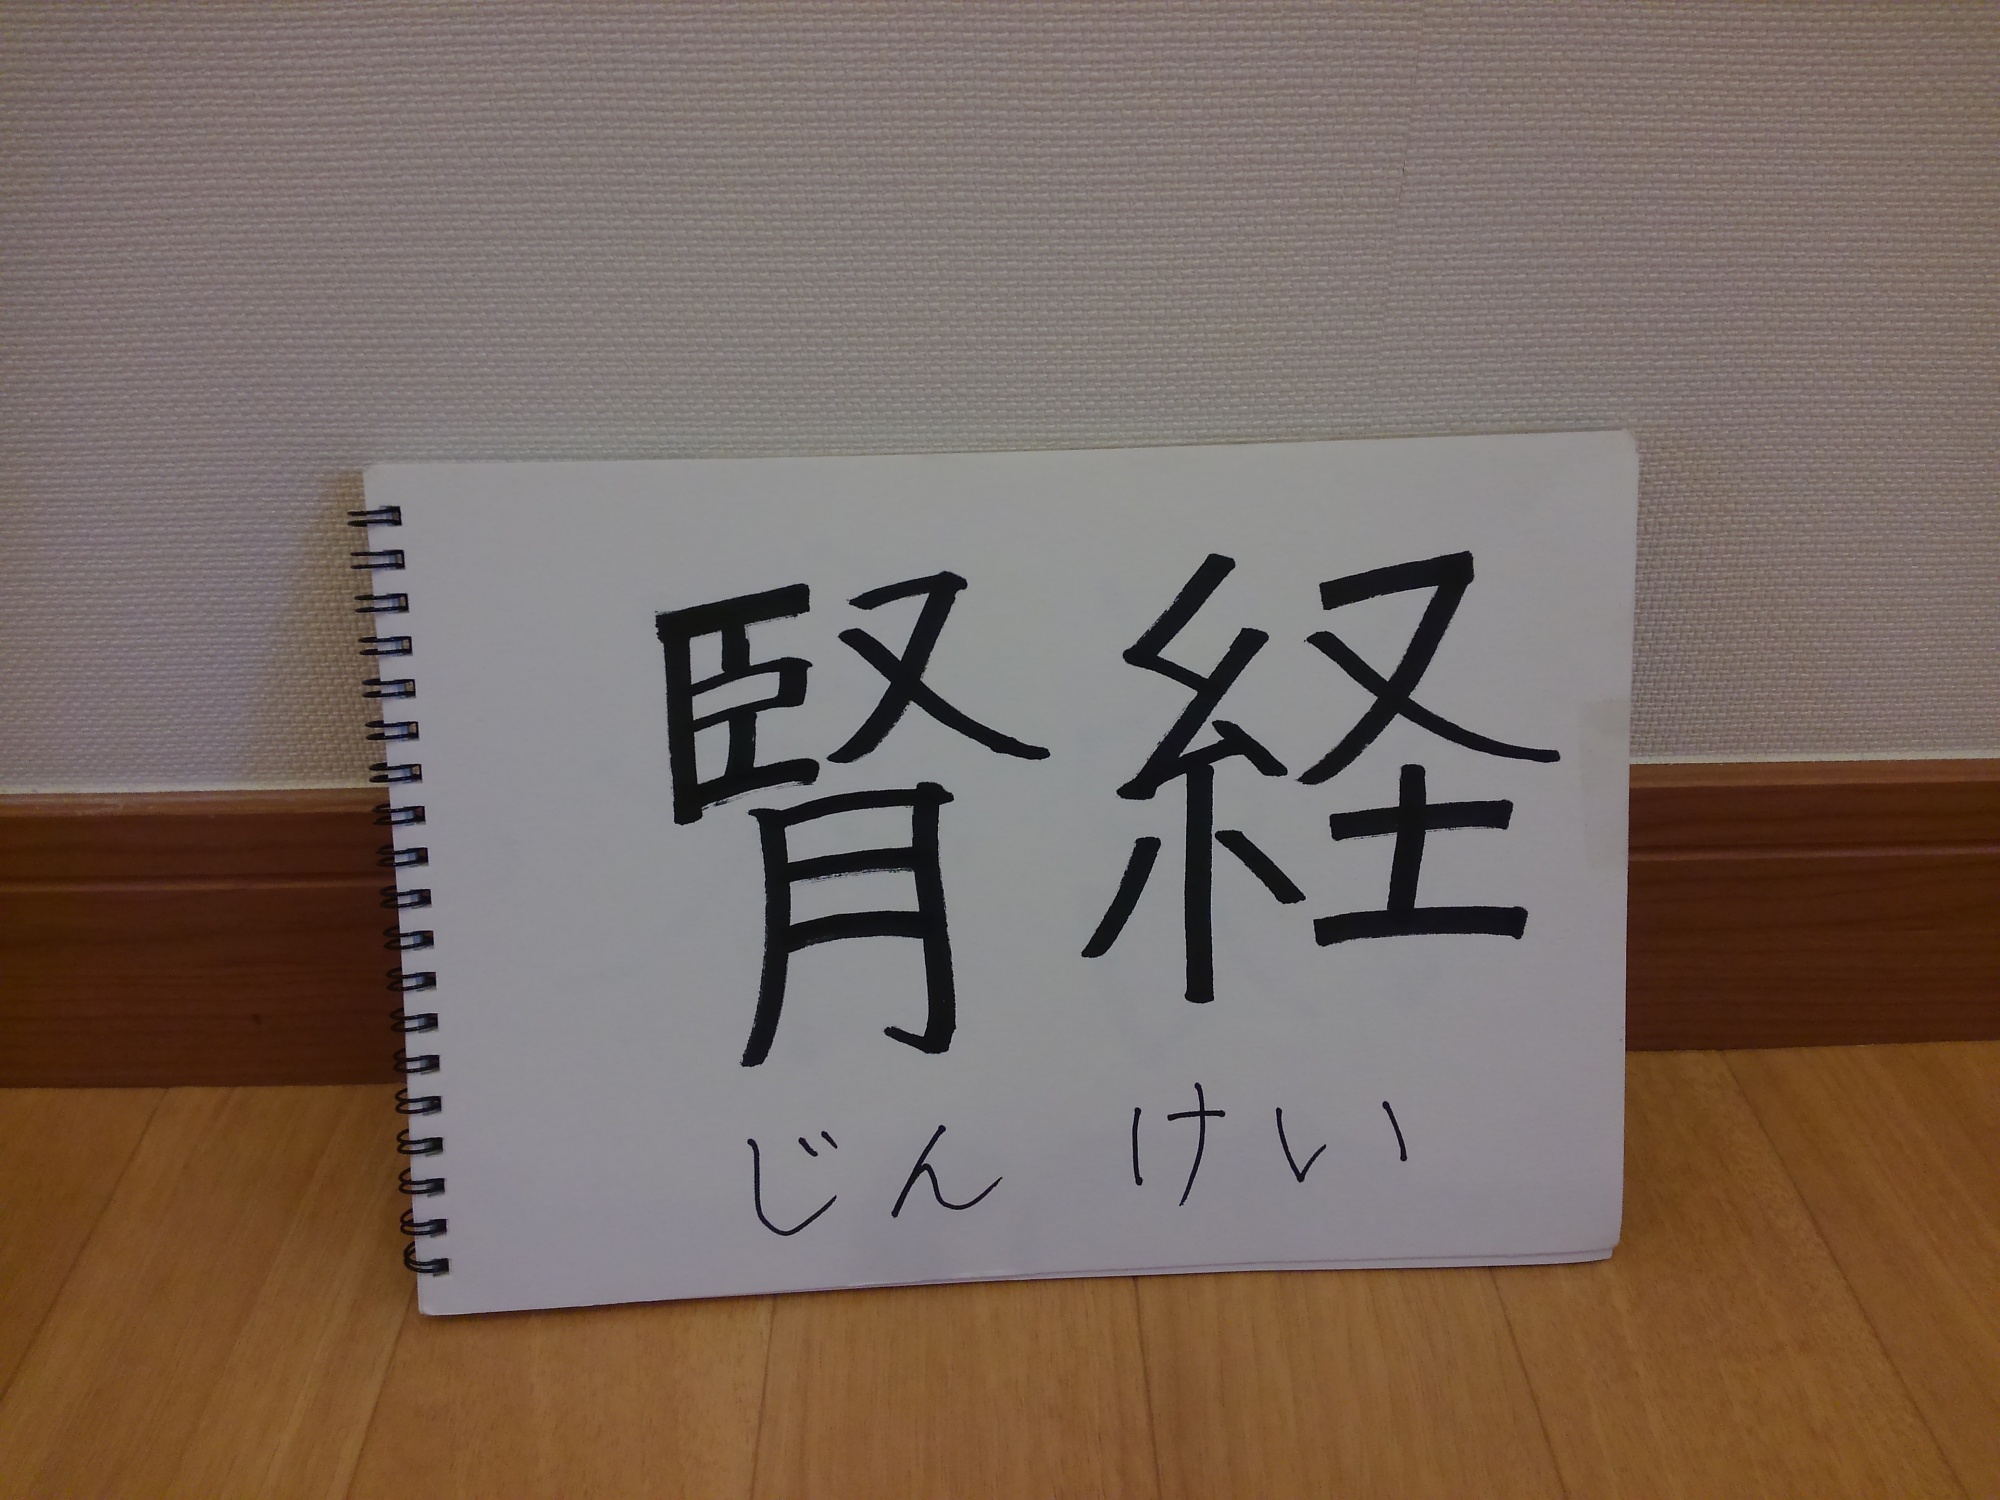 腎経
じんけい